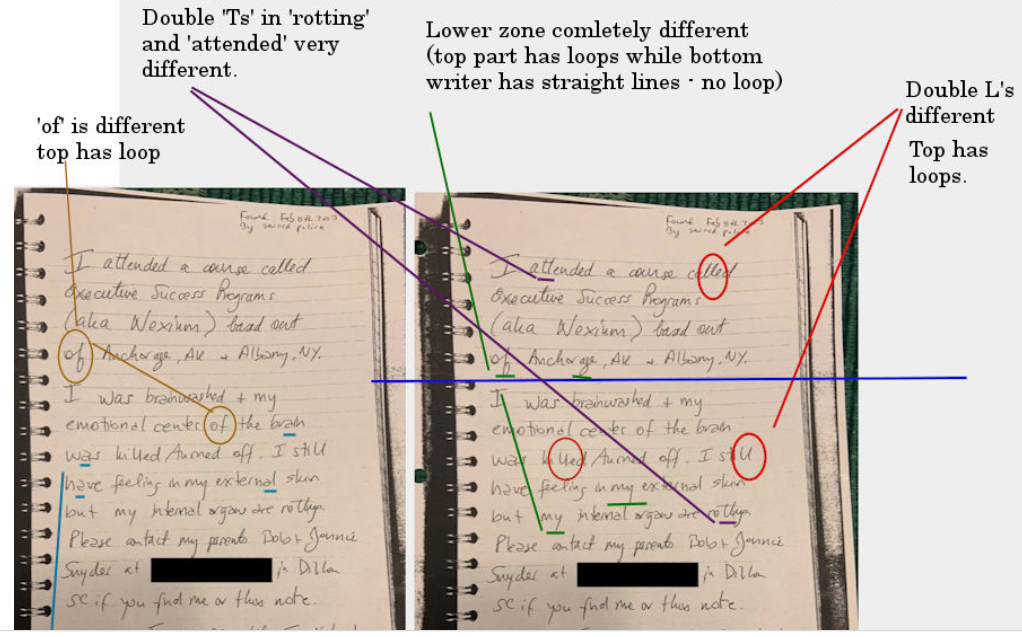 Double 'Ts' in 'rotting'
and 'attended' very
different.
Lower zone comletely different
(top part has loops while bottom
writer has straight lines - no loop)
Double L's
different
Top has
loops.
'of' is different
top has loop
Found Feb
By police
I attended a course called
Executive Success Programs
(aka Nexium) based out
of Anchorage, AK + Albany, NY.
I was brainwashed + my
emotional center of the brain
was killed/turned off. I still
have feeling in my external skin
but my internal organs are rotting.
Please contact my parents Bob +
Snyder at in Dillon
SC if you find me or this note.
Found Feb
By police
I attended a course called
Executive Success Programs
(aka Nexium) based out
of Anchorage, AK + Albany, NY.
I was brainwashed + my
emotional center of the brain
was killed/turned off. I still
have feeling in my external skin
but my internal organs are rotting.
Please contact my parents Bob +
Snyder at in Dillon
SC if you find me or this note.